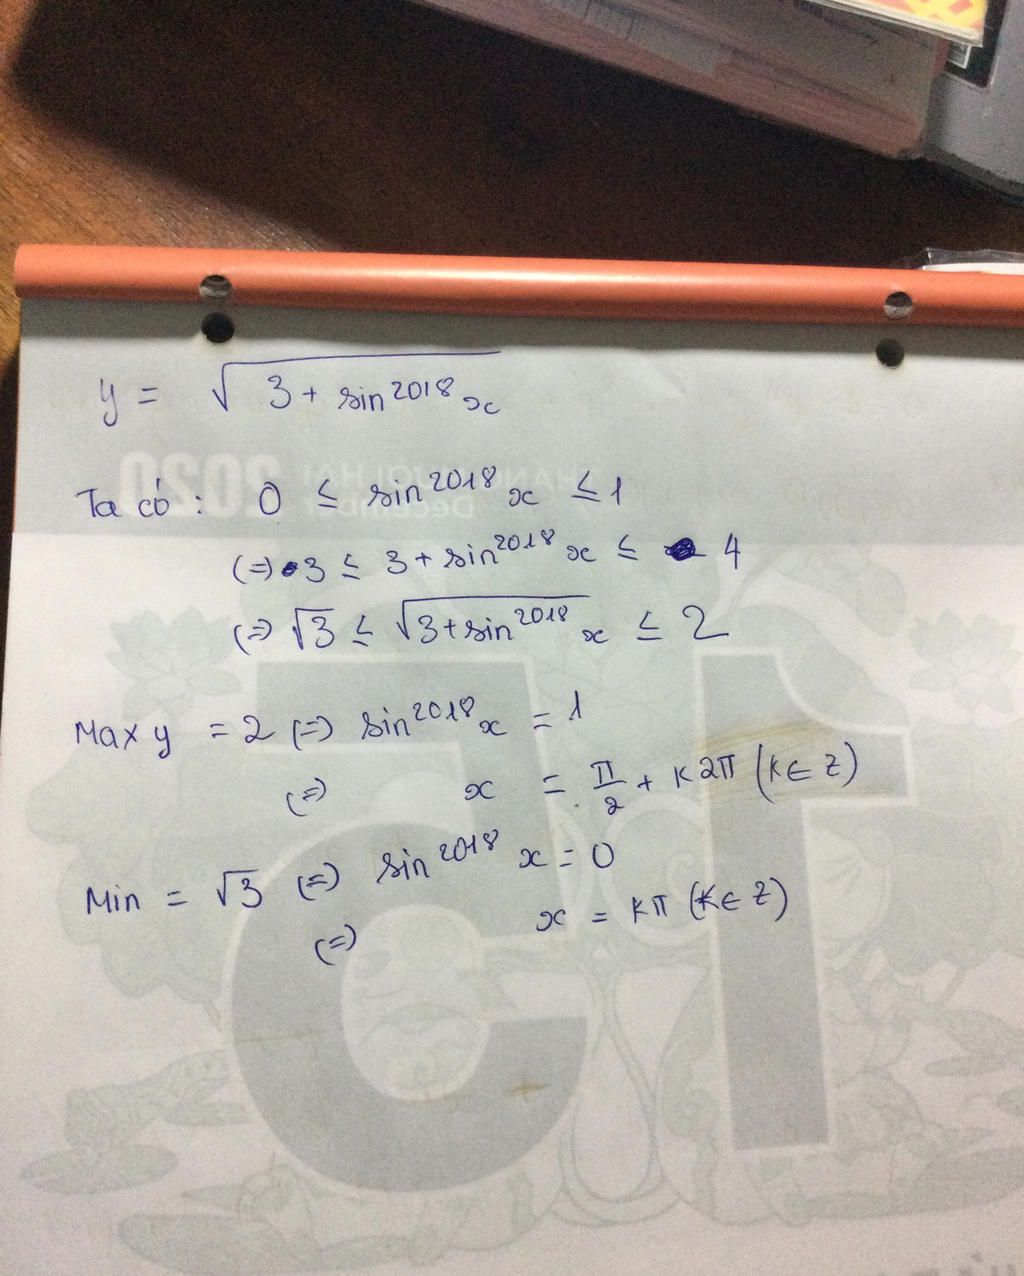 y = √3 + sin²⁰¹⁸x
Ta có: 0 ≤ sin²⁰¹⁸x ≤ 1
(=) 3 ≤ 3 + sin²⁰¹⁸x ≤ 4
(=) √3 ≤ √3+sin²⁰¹⁸x ≤ 2
Max y = 2 (=) sin²⁰¹⁸x = 1
(=) x = π/2 + k2π (k∈Z)
Min = √3 (=) sin²⁰¹⁸ x = 0
(=) x = kπ (k∈Z)
2020
December
15